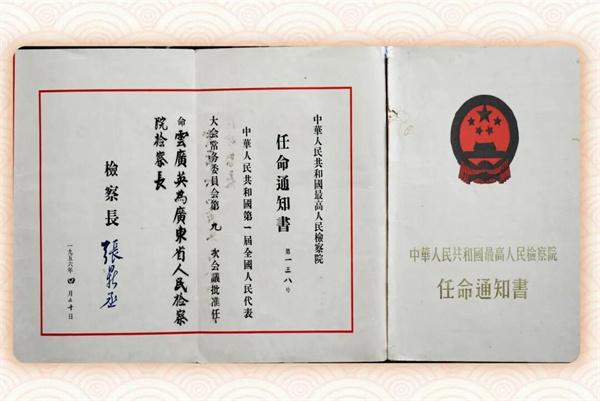 中華人民共和國最高人民檢察院
任命通知書
中華人民共和國最高人民檢察院
任命通知書
第一三八号
中華人民共和國第一届全國人民代表
大会常务委員会第九次会議批准任
命雲廣英為廣東省人民检察
院检察長
檢察長 張鼎丞
一九五六年四月二十日